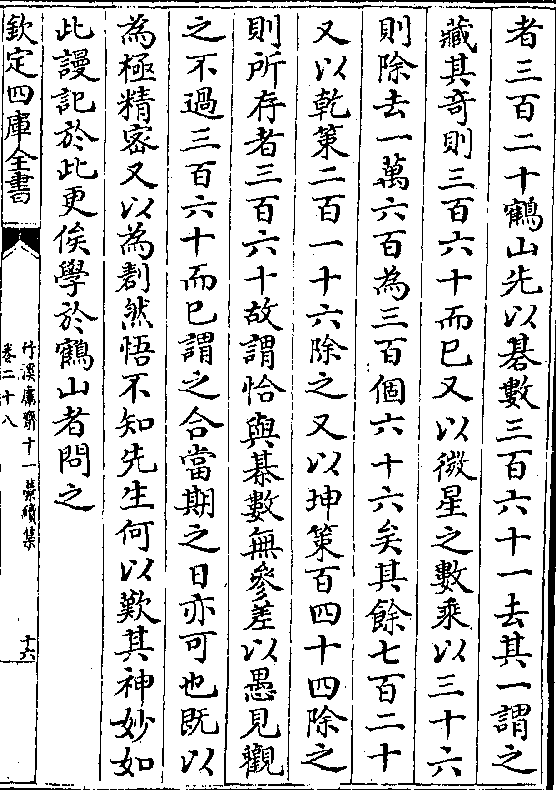 者三百二十鶴山先以碁數三百六十一去其一謂之
藏其竒則三百六十而已又以微星之數乘以三十六
則除去一萬六百為三百個六十六矣其餘七百二十
又以乾策二百一十六除之又以坤策百四十四除之
則所存者三百六十故謂恰與碁數無參差以愚見觀
之不過三百六十而已謂之合當期之日亦可也既以
為極精宻又以為劃然悟不知先生何以歎其神妙如
此謾記於此更俟學於鶴山者問之
欽定四庫全書
竹溪鬳齋十一藁續集
卷二十八
十六